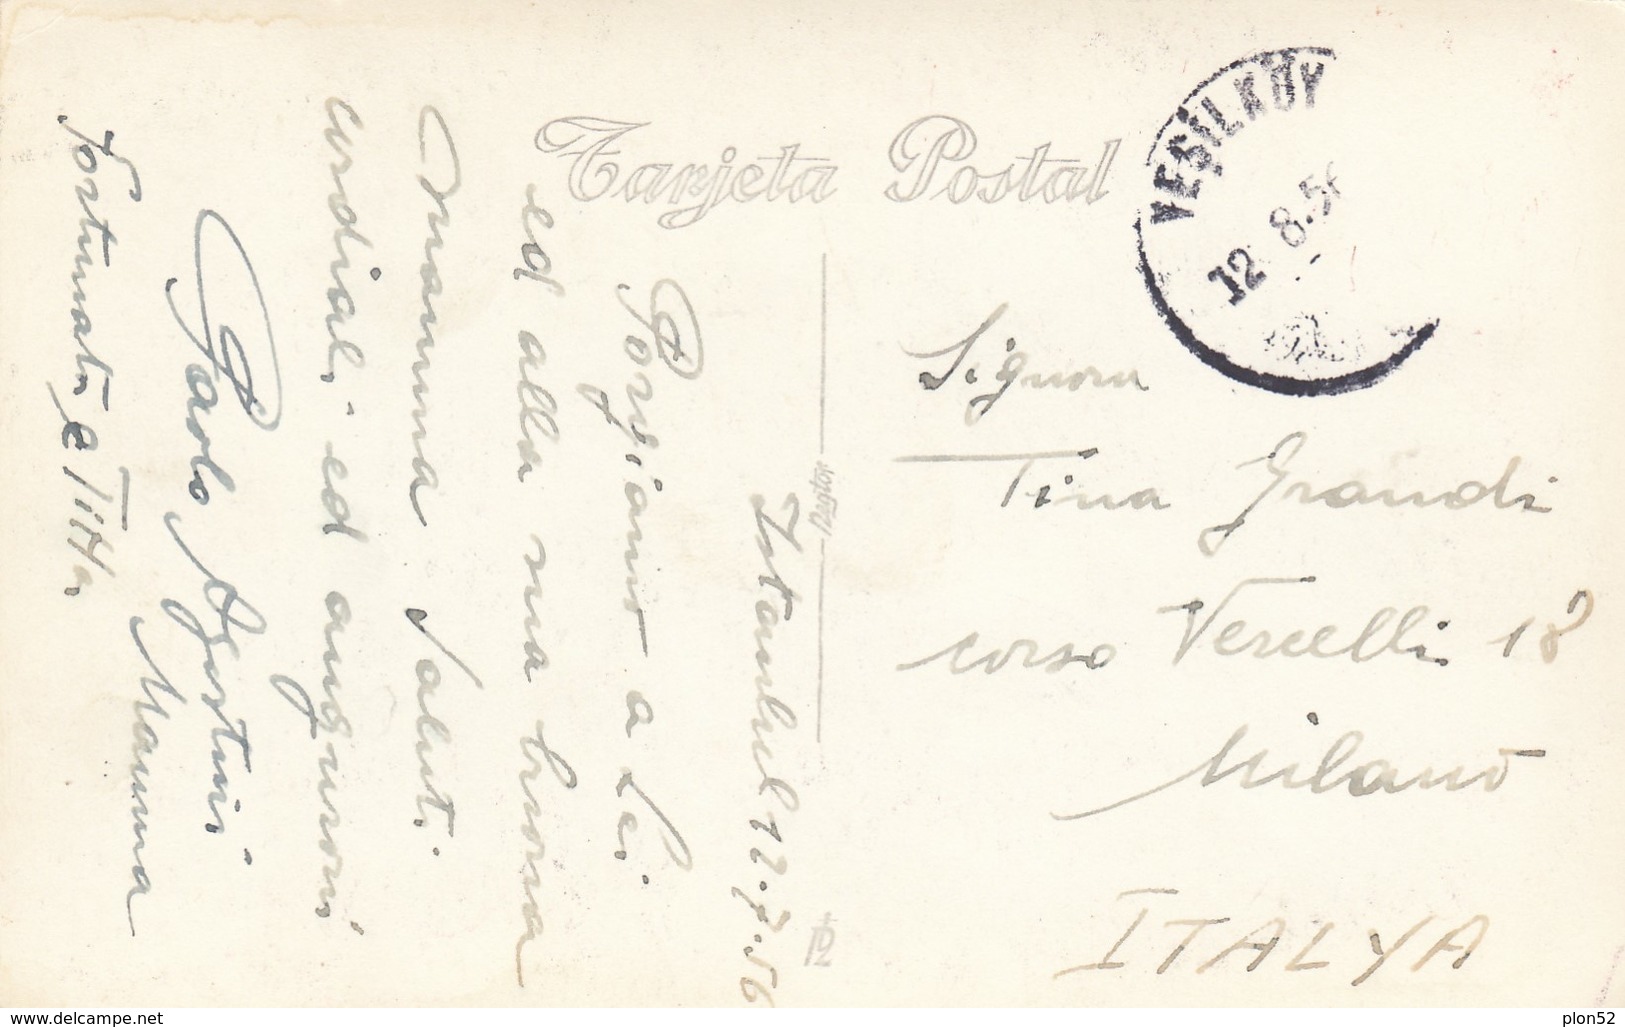 Tarjeta Postal
YEŞİLKÖY
12 8.56
Istambul 12.7.56
Porgiamo a Lei
ed alla sua buona
Mamma saluti
cordiali ed auguroni
Paolo Agostini
Mamma
Fortunata e Titta
Signora
Tina Grandi
corso Vercelli 18
Milano
ITALYA
www.delcampe.net
plon52